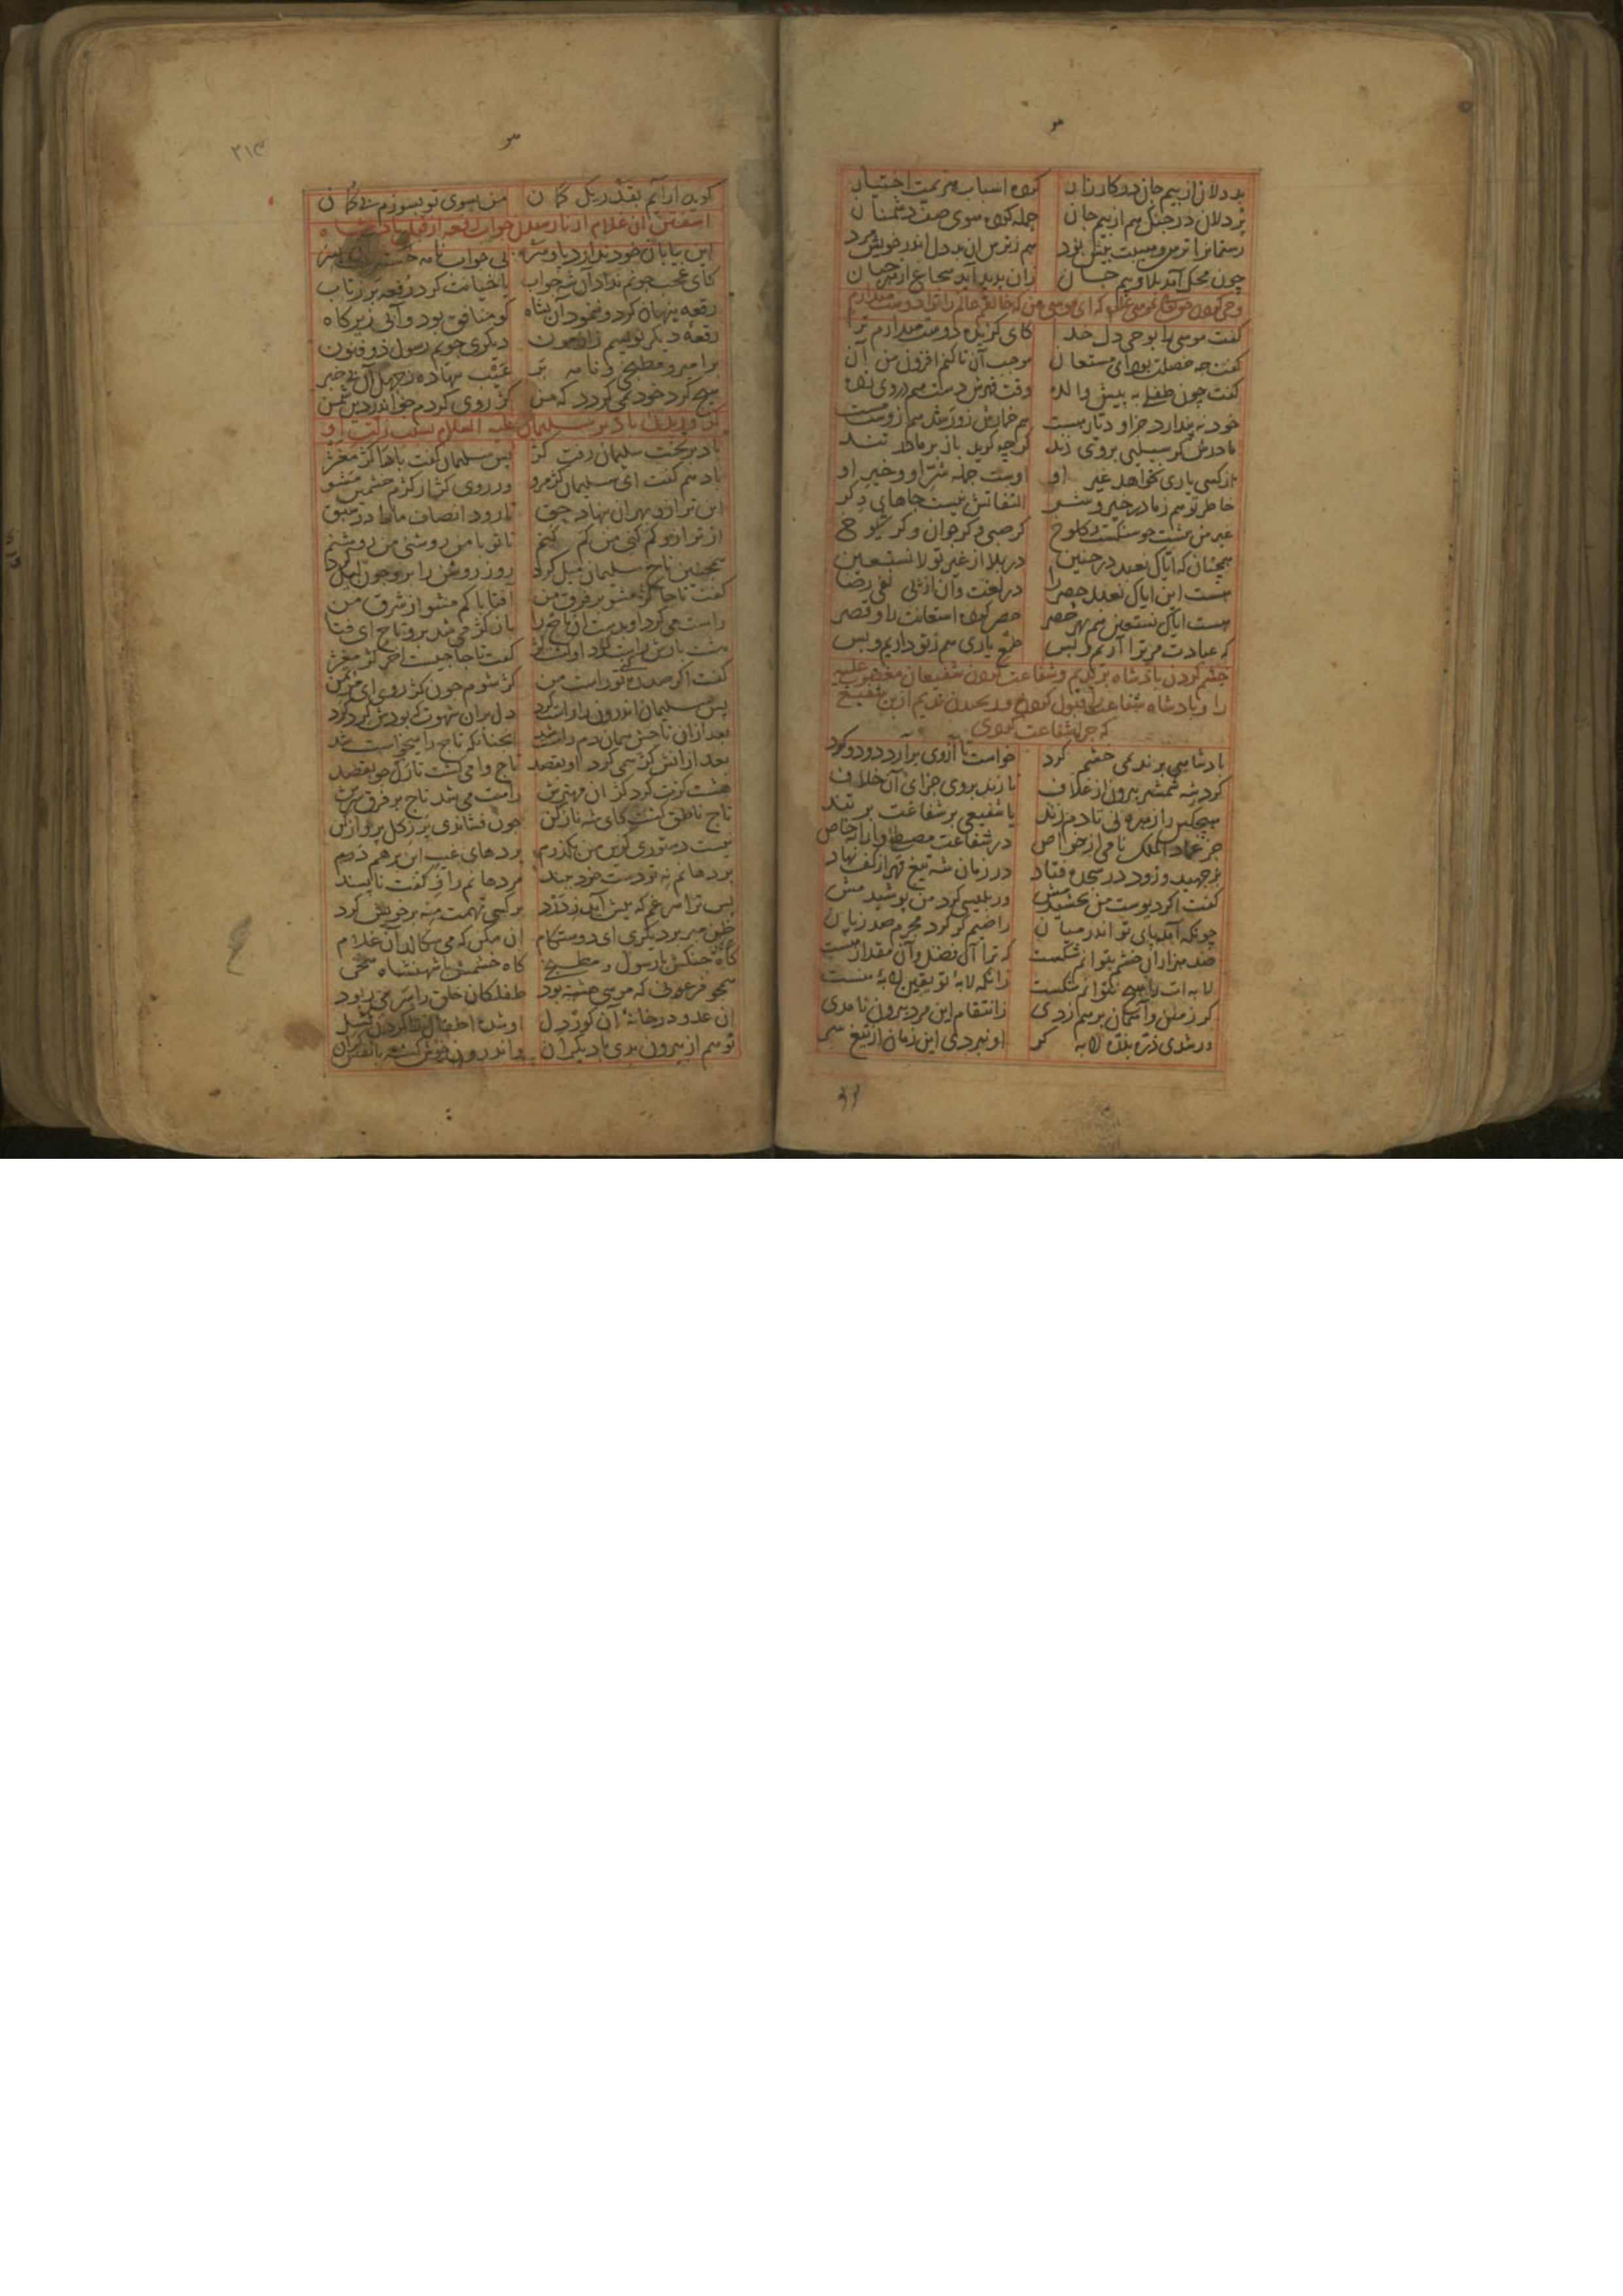 بد دلان از بیم جان در کارزار کرده اسباب هزیمت اختیار
پر دلان در جنک هم از بیم جان حمله کرده سوی صف دشمنان
رستمانرا ترس و بیم پیش برد هم ز ترس ان بد دل اندر خویش مرد
چون محک آمد بلا و بیم جان زان بدید آید شجاع از هر جبان
وحی کردن حق تعالی بموسی علیه که ای موسی من که خالقم عالم را ترا دوست میدارم
گفت موسی را بوحی دل خدا کای کزیده دوست میدارم ترا
گفت چه خصلت بود ای مستعان موجب آن تا کنم افزون من آن
گفت چون طفلی به پیش والده وقت قهرش دست هم در وی زده
خود نه پندارد جز او دیار هست هم خمارش زو شد هم زوست مست
مادرش کر سیلیی بروی زند کرچه کوید باز بر مادر تند
از کسی یاری نخواهد غیر او اوست جمله شرّ او و خیر او
خاطر تو هم ز ما در خیر و شر التفاتش نیست جاهای دکر
غیر من پیشت چو سنکست و کلوخ کر صبی و کر جوان و کر شیوخ
همچنان که ایاک نعبد در حنین در بلا از غیر تو لا نستعین
هست این ایاک نعبد حصر را در لغت وان از پی نفی ریا
هست ایاک نستعین هم بهر حصر حصر کرده استعانت را و قصر
که عبادت مر ترا آریم و بس طمع یاری هم ز تو داریم و بس
خشم کردن پادشاه بر ندیم و شفاعت کردن شفیعان مغضوب علیه
را و پادشاه شفاعت قبول کردن و رنجیدن ندیم از ین شفیع
که چرا شفاعت کردی
پادشاهی بر ندیمی خشم کرد خواست تا از وی برآرد دود و کرد
کرد شه شمشیر بیرون از غلاف تا زند بر وی جزای آن خلاف
هیچکس را زهره نی تا دم زند یا شفیعی بر شفاعت بر تند
جز عماد الملک نامی از خواص در شفاعت مصطفی وارانه خاص
بر جهید و زود در سجده فتاد در زمان شه تیغ قهر از کف نهاد
گفت اکر دیوست من بخشیدمش ور بلیسی کرد من پوشیدمش
چونکه آمد پای تو اندر میان راضیم کر کرد مجرم صد زیان
صد هزاران خشم بتوانم شکست که ترا آن فضل و آن مقدار هست
لابه ات را هیچ نتوانم شکست زانکه لابهٔ تو یقین لابهٔ منست
کر زمین و آسمان بر هم زدی ز انتقام این مرد بیرون نامدی
ور شدی ذره بذره لابه کر او نبردی این زمان از تیغ سر
۲۱۳
کوید ار آیم بقدر یک کمان من بسوی تو بسوزم بی کمان
اشفتن آن غلام از نارسیدن جواب رقعه از قبل پادشاه
این بیابان خود ندارد پا و سر بی جواب نامه خستست آن پسر
کای عجب چونم نداد آن شه جواب یا خیانت کرد رقعه بر ز تاب
رقعه پنهان کرد و ننمود آن بشاه کو منافق بود و آبی زیر کاه
رقعهٔ دیکر نویسم زازمون دیکری جویم رسول ذو فنون
بر امیر و مطبخی و نامه بر عیب بنهاده ز جهل آن بی خبر
هیچ کرد خود نمی کردد که من کژ روی کردم چو اندر دین شمن
کژ وزیدن باد بر سلیمان علیه السلام بسبب زلت او
باد بر تخت سلیمان رفت کژ پس سلیمان گفت بادا کژ مغژ
باد هم گفت ای سلیمان کژ مرو ور روی کژ از کژم خشمین مشو
این ترازو بهر آن بنهاد حق تا رود انصاف ما را در سبق
از ترازو کم کنی من کم کنم تا تو با من روشنی من روشنم
همچنین تاج سلیمان میل کرد روز روشن را برو چون لیل کرد
گفت تاجا کژ مشو بر فرق من آفتابا کم مشو از شرق من
راست می کرد او بدست آن تاج را باز کژ می شد برو تاج ای فتا
هشت بارش راست کرد او کشت کژ گفت تاجا چیست اخر کژ مغژ
گفت اکر صد ره کنی تو راست من کژ شوم چون کژ روی ای مؤتمن
پس سلیمان اندرون را راست کرد دل بران شهوت که بودش کرد سرد
بعد ازان تاجش همان دم راست شد آنچنانکه تاج را میخواست شد
بعد ازانش کژ همی کرد او بقصد تاج وا می کشت تارک جو بقصد
هشت کرّت کرد کژ آن مهترش راست می شد تاج بر فرق سرش
تاج ناطق کشت کای شه ناز کن چون فشاندی پر ز کل پرواز کن
نیست دستوری کزین من بکذرم پردهای غیب این بر هم درم
بر دهانم نه تو دست خود ببند مر دهانم را ز گفت ناپسند
پس ترا هر غم که پیش آید ز درد بر کسی تهمت منه بر خویش کرد
ظن مبر بر دیکری ای دوستکام آن مکن که می سکالد آن غلام
کاه جنکش با رسول و مطبخی کاه خشمش با شهنشاه سخی
همچو فرعونی که موسی هشته بود طفلکان خلق را سر می ربود
آن عدو در خانهٔ آن کور دل او شده اطفال را کردن کسل
تو هم از بیرون بدی با دیکران و اندرون خوش کشته با نفس کران